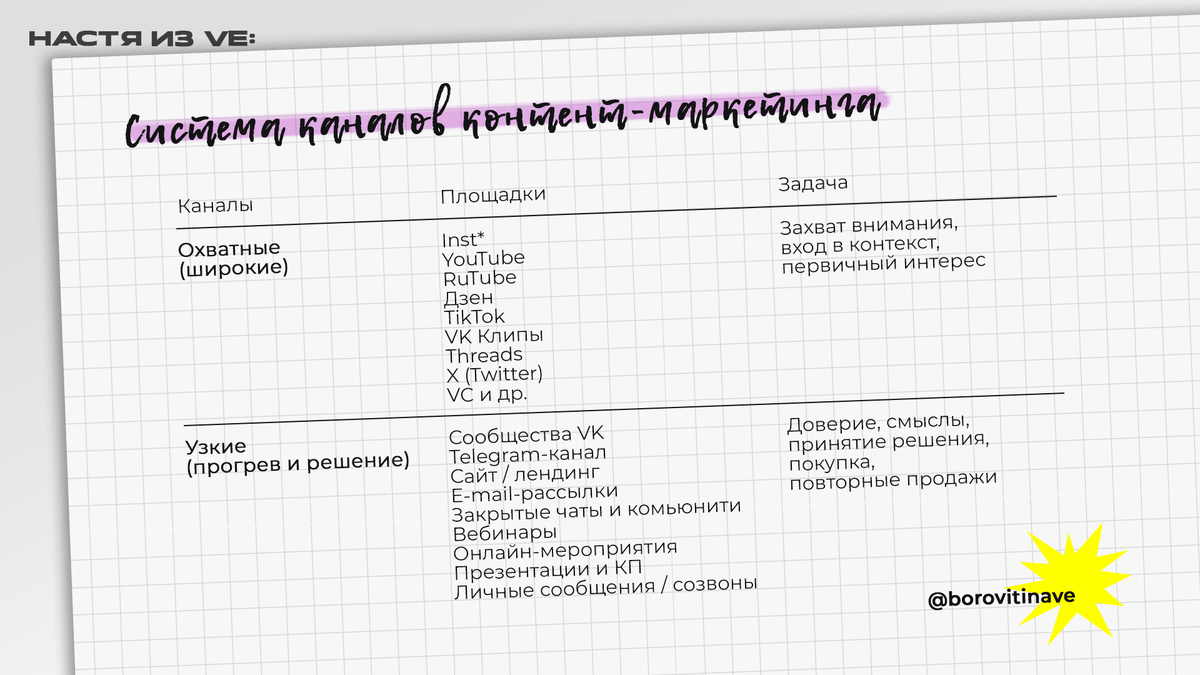 НАСТЯ ИЗ VE:
Система каналов контент-маркетинга
Каналы
Площадки
Задача
Охватные
(широкие)
Inst*
YouTube
RuTube
Дзен
TikTok
VK Клипы
Threads
X (Twitter)
VC и др.
Захват внимания,
вход в контекст,
первичный интерес
Узкие
(прогрев и решение)
Сообщества VK
Telegram-канал
Сайт / лендинг
E-mail-рассылки
Закрытые чаты и комьюнити
Вебинары
Онлайн-мероприятия
Презентации и КП
Личные сообщения / созвоны
Доверие, смыслы,
принятие решения,
покупка,
повторные продажи
@borovitinave